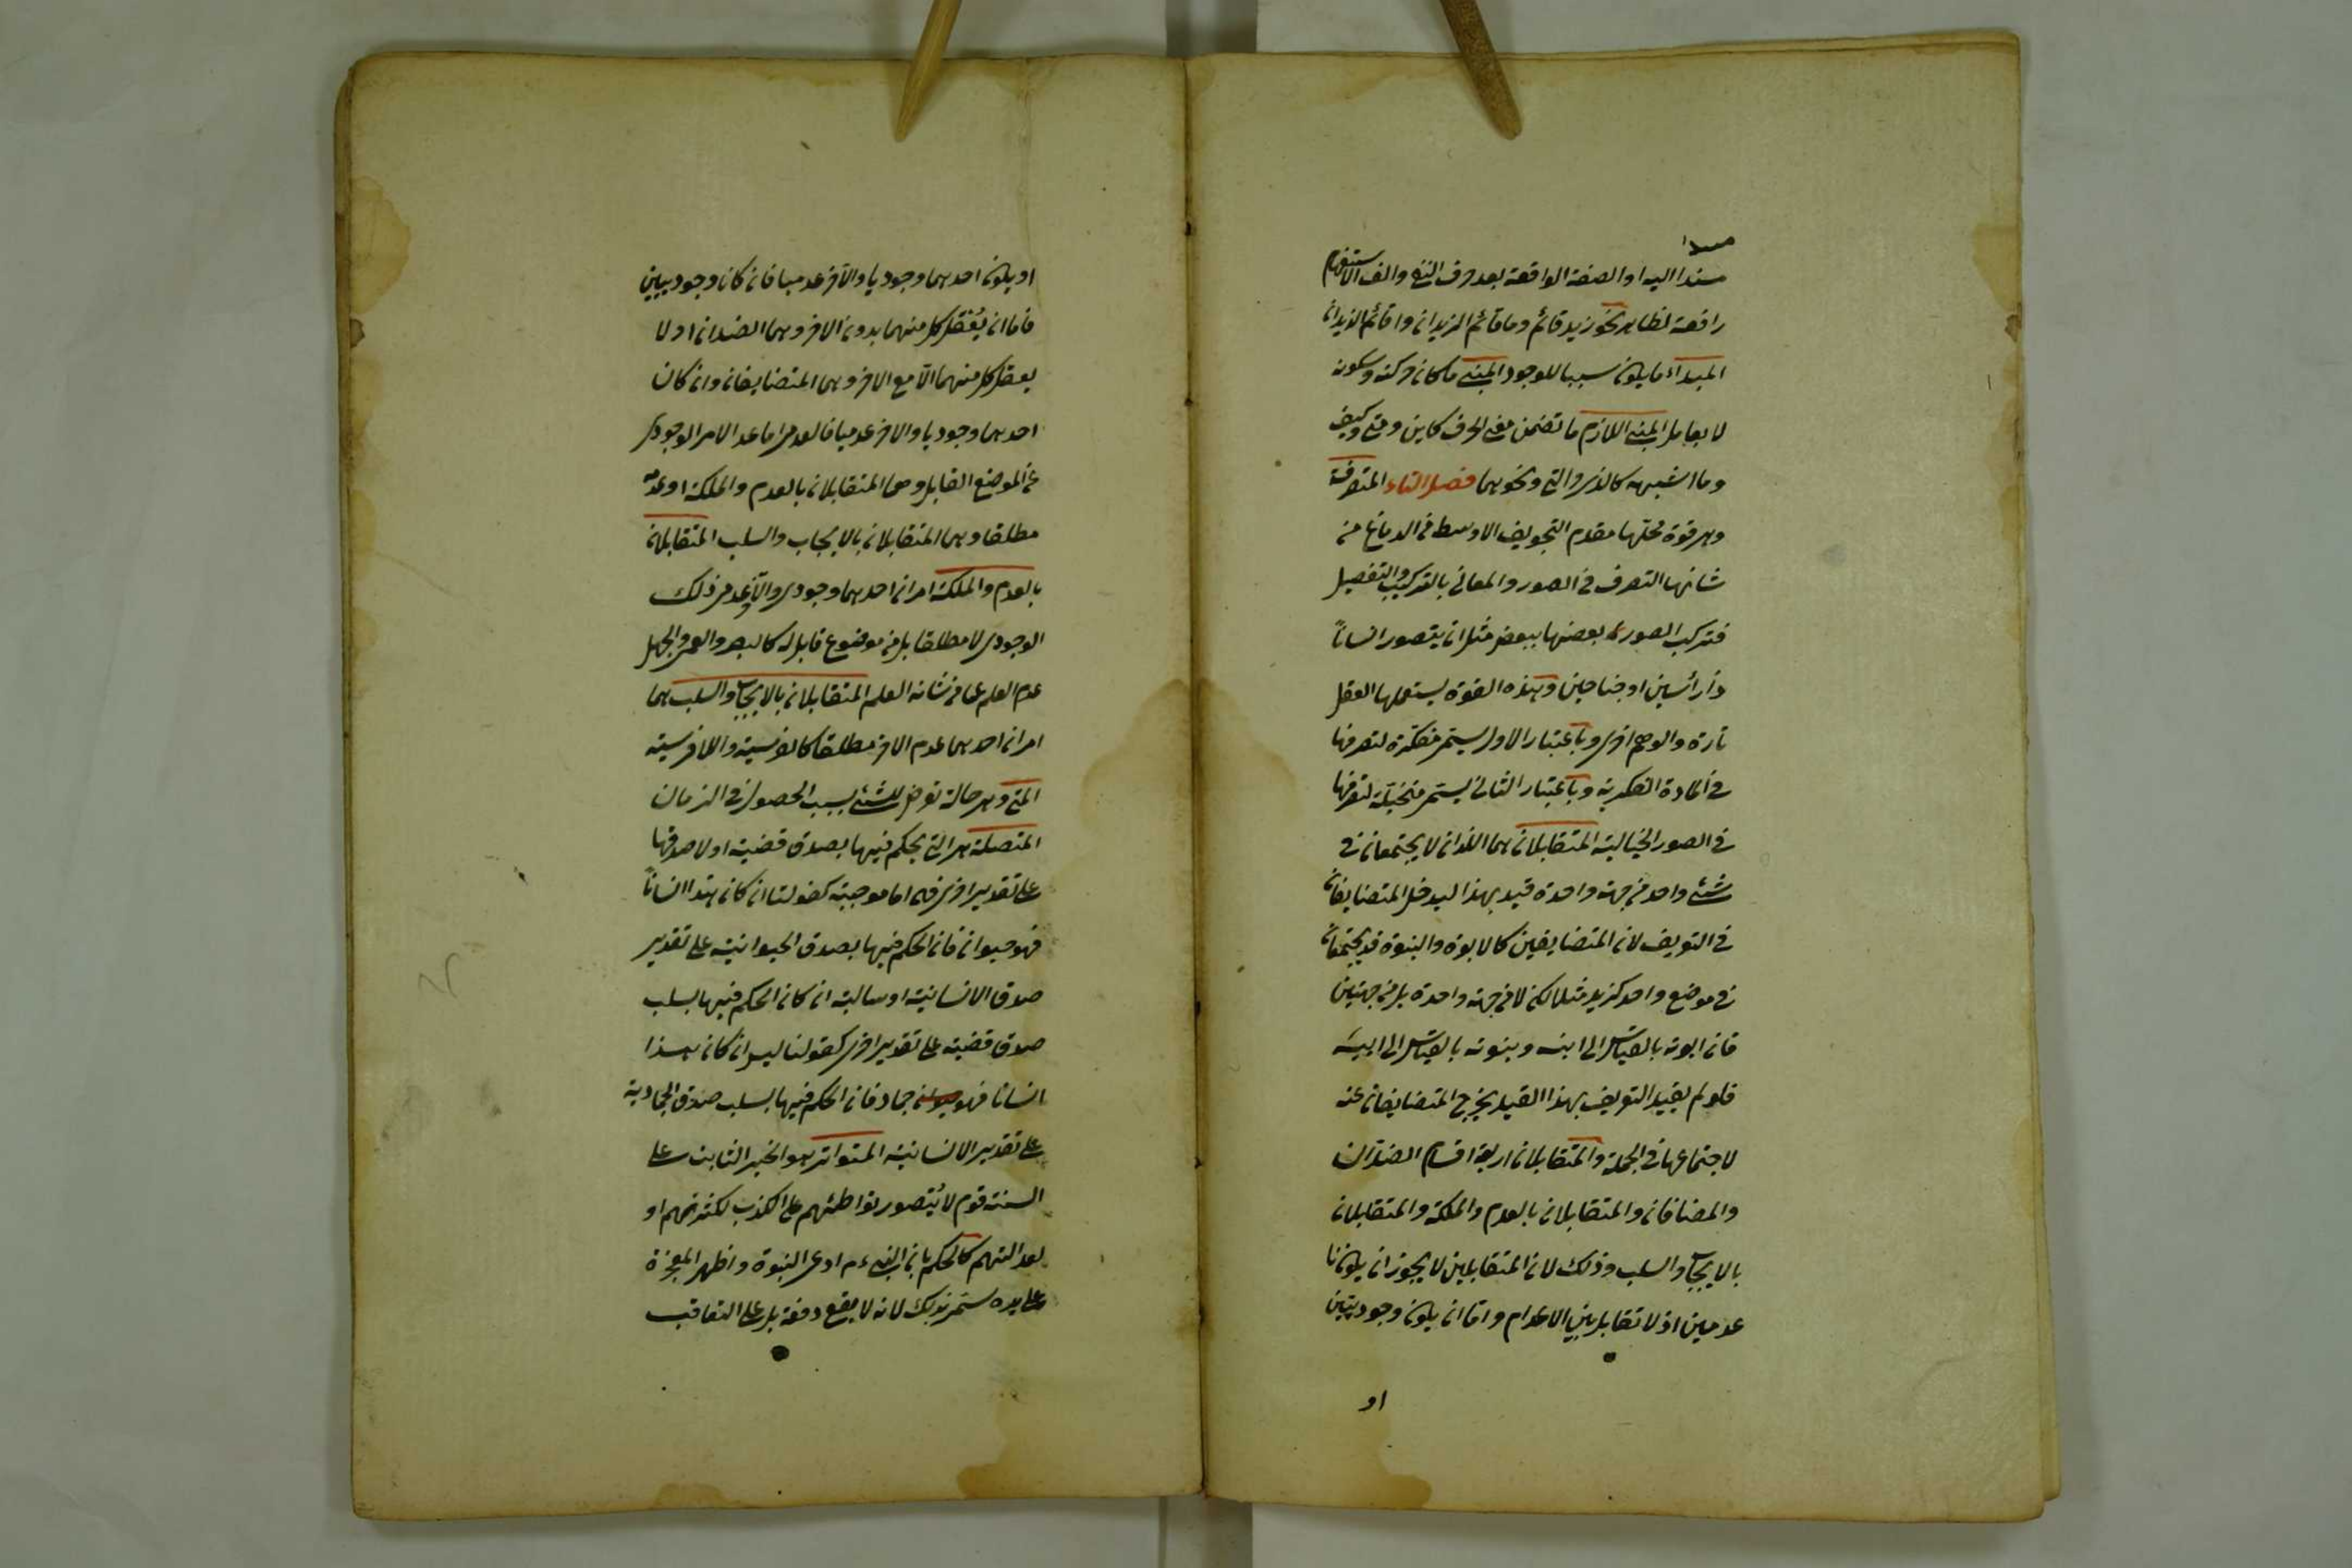 مبتدا
مسندا اليه او الصفة الواقعة بعد حرف النفي والف الاستفهام
رافعة لظاهر نحو زيد قائم وما قائم الزيدان واقائم الزيدان
المبداء ما يكون سببا للوجود المبنى ما كان حركته وسكونه
لا بعامل المبنى اللازم ما تضمن معنى الحرف كاين ومتى وكيف
وما اشبهه كالذى والتى ونحوهما فصل التاء المتصرفة
وهى قوة محلها مقدم التجويف الاوسط من الدماغ من
شانها التصرف فى الصور والمعانى بالتركيب والتفصيل
فتركب الصور بعضها ببعض مثل ان يتصور انسانا
ذا رأسين او جناحين وهذه القوة يستعملها العقل
تارة والوهم اخرى وباعتبار الاول يسمى مفكرة لتصرفها
فى المادة الفكرية وباعتبار الثانى يسمى متخيلة لتصرفها
فى الصور الخيالية المتقابلان هما اللذان لا يجتمعان فى
شئ واحد من جهة واحدة قيد بهذا ليدخل المتضايفان
فى التعريف لان المتضايفين كالابوة والبنوة قد يجتمعان
فى موضع واحد كزيد مثلا لكن لا من جهة واحدة بل من جهتين
فان ابوته بالقياس الى ابنه وبنوته بالقياس الى ابيه
فلو لم يقيد التعريف بهذا القيد يخرج المتضايفان عنه
لاجتماعهما فى الجملة والمتقابلان اربعة اقسام الضدان
والمضافان والمتقابلان بالعدم والملكة والمتقابلان
بالايجاب والسلب وذلك لان المتقابلين لا يجوز ان يكونا
عدميين اذ لا تقابل بين الاعدام واما ان يكون وجوديين
او
او يكون احدهما وجوديا والآخر عدميا فان كان وجوديين
فاما ان يعقل كل منهما بدون الاخر وهما الضدان او لا
يعقل كل منهما الا مع الاخر وهما المتضايفان وان كان
احدهما وجوديا والاخر عدميا فالعدمى اما عدم الامر الوجودى
عن الموضع القابل وهما المتقابلان بالعدم والملكة او عدمه
مطلقا وهما المتقابلان بالايجاب والسلب المتقابلان
بالعدم والملكة امران احدهما وجودى والآخر عدمى ذلك
الوجودى لا مطلقا بل من موضوع قابل له كالبصر والعمى والجهل
عدم العلم عما من شانه العلم المتقابلان بالايجاب والسلب هما
امران احدهما عدم الاخر مطلقا كالفرسية واللافرسية
المتى وهى حالة تعرض للشئ بسبب الحصول فى الزمان
المتصلة هى التى يحكم فيها بصدق قضية او لا صدقها
على تقدير اخرى فهى اما موجبة كقولنا ان كان هذا انسانا
فهو حيوان فان الحكم فيها بصدق الحيوانية على تقدير
صدق الانسانية او سالبة ان كان الحكم فيها بسلب
صدق قضية على تقدير اخرى كقولنا ليس ان كان هذا
انسانا فهو جماد فان الحكم فيها بسلب صدق الجمادية
على تقدير الانسانية المتواتر هو الخبر الثابت على
السنة قوم لا يتصور تواطئهم على الكذب لكثرتهم او
لعدالتهم كالحكم بان النبى ءم ادعى النبوة واظهر المعجزة
على يده سمى بذلك لانه لا يقع دفعة بل على التعاقب